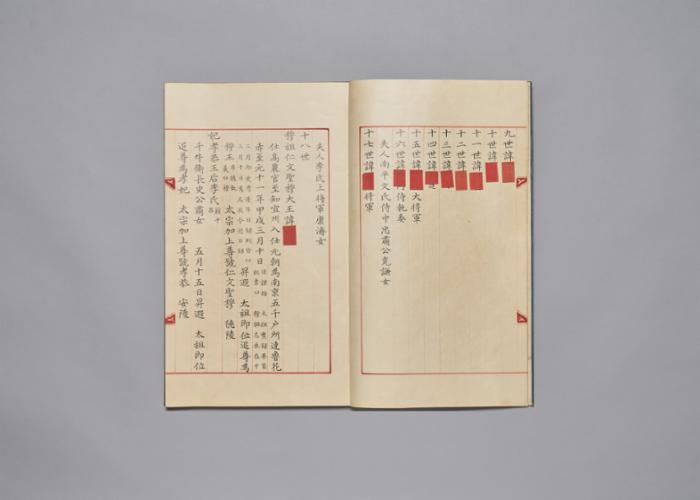 九世諱
十世諱
十一世諱
十二世諱
十三世諱
十四世諱
十五世諱 大將軍
十六世諱 內侍執奏
夫人南平文氏侍中忠肅公克謙女
十七世諱 將軍
夫人李氏上將軍康濟女
十八世
穆祖仁文聖穆大王諱
仕高麗官至知宜州入仕元朝爲南京五千戶所達魯花
赤至元十一年甲戌三月十日
昇遐 太祖即位追尊爲
穆王 太宗加上尊號仁文聖穆 德陵
妃孝恭王后李氏
千牛衛長史公肅女 五月十五日昇遐 太祖即位
追尊爲孝妃 太宗加上尊號孝恭 安陵